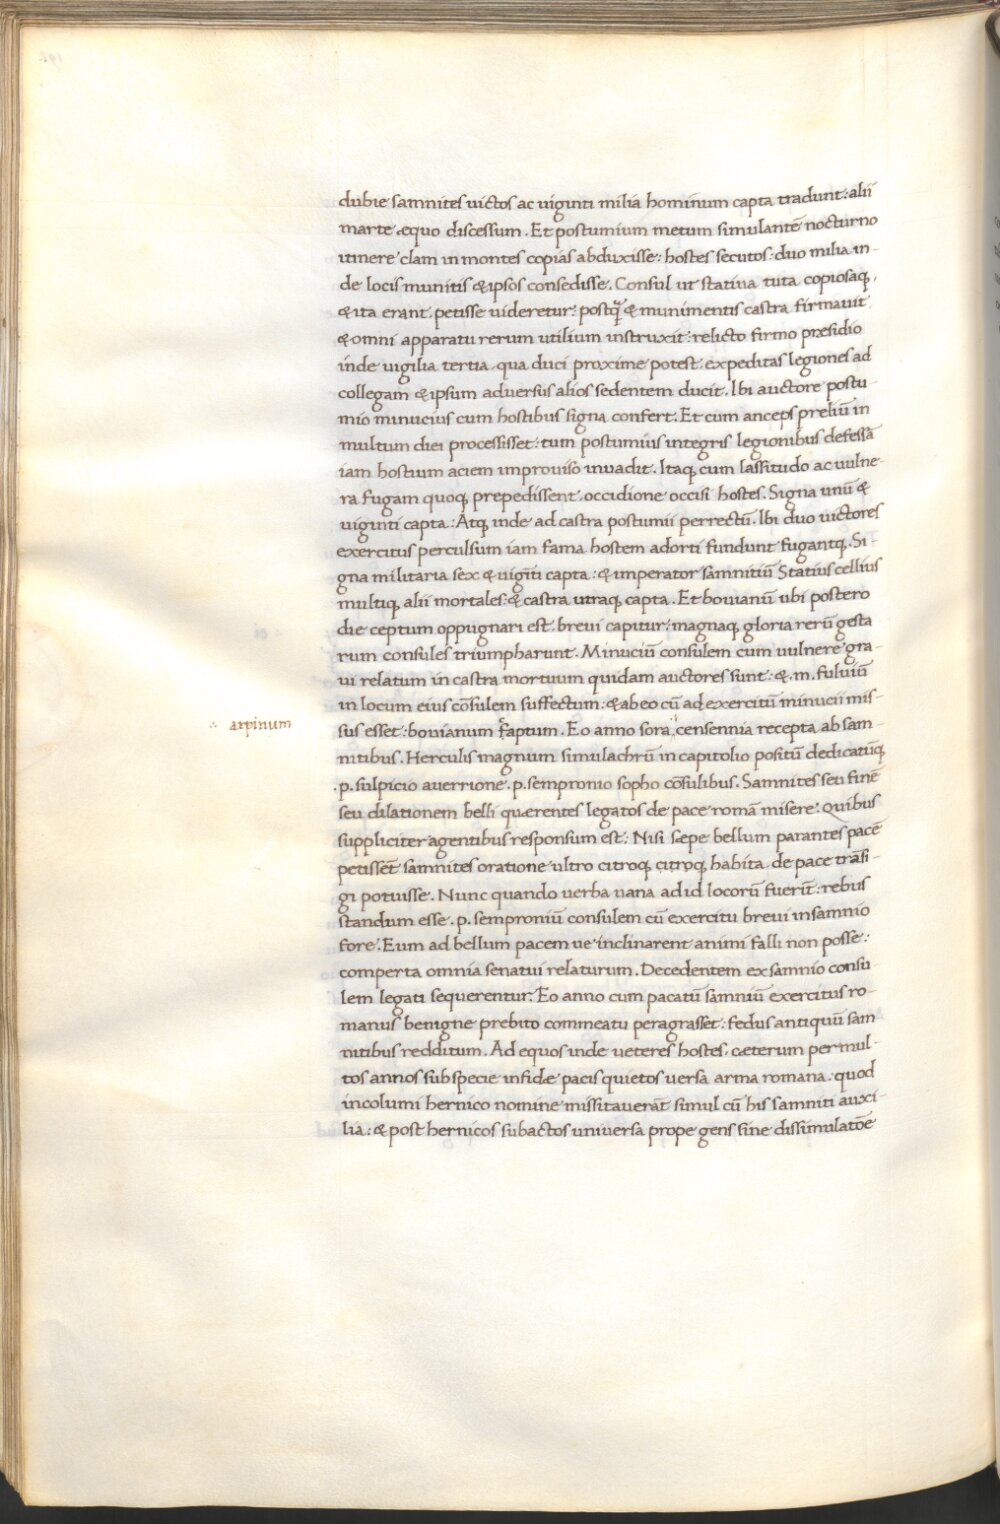 dubie samnites uictos ac uiginti milia hominum capta tradunt: alii
marte equo discessum. Et postumium metum simulantē nocturno
itinere clam in montes copias abduxisse: hostes secutos: duo milia in-
de locis munitis & ipsos consedisse. Consul ut statiua tuta copiosaq,
& ita erant petisse uideretur: postq̄ & munimentis castra firmauit
& omni apparatu rerum utilium instruxit: relicto firmo præsidio
inde uigilia tertia qua duci proxime potest expeditas legiones ad
collegam & ipsum aduersus alios sedentem ducit. Ibi auctore postu-
mio minucius cum hostibus signa confert. Et cum anceps preliū in
multum diei processisset: tum postumius integris legionibus defessā
iam hostium aciem improuiso inuadit. Itaq, cum lassitudo ac uulne-
ra fugam quoq, prepedissent occidione occisi hostes. Signa unū &
uiginti capta: Atq, inde ad castra postumii perrectū. Ibi duo uictores
exercitus perculsum iam fama hostem adorti fundunt fugantq,. Si-
gna militaria sex & uigīti capta: & imperator samnitiū Statius cellius
multiq, alii mortales: & castra utraq, capta. Et bouianū ubi postero
die ceptum oppugnari est breui capitur: magnaq, gloria rerū gesta
rum consules triumpharunt. Minuciū consulem cum uulnere gra-
ui relatum in castra mortuum quidam auctores sunt: & .m. fuluiū
in locum eius cōsulem suffectum: & ab eo cū ad exercitū minucii mis-
sus esset: bouianum captum. Eo anno sora ∴ censennia recepta ab sam-
∴ arpinum
nitibus. Herculis magnum simulachrū in capitolio positū dedicatūq,
.p. sulpicio auerrione .p. sempronio sopho cōsulibus. Samnites seu finē
seu dilationem belli quærentes legatos de pace romā misere. Quibus
suppliciter agentibus responsum est: Nisi sæpe bellum parantes pacē
petissēt samnites oratione ultro citroq, citroq, habita de pace trāsi-
gi potuisse. Nunc quando uerba uana ad id locorū fuerīt: rebus
standum esse .p. semproniū consulem cū exercitu breui in samnio
fore. Eum ad bellum pacem ue inclinarent animi falli non posse:
comperta omnia senatui relaturum. Decedentem ex samnio consu
lem legati sequerentur. Eo anno cum pacatū samniū exercitus ro-
manus benigne prebito commeatu peragrasset: fedus antiquū sam
nitibus redditum. Ad equos inde ueteres hostes. cæterum per mul-
tos annos sub specie infidæ pacis quietos uersa arma romana: quod
incolumi hernico nomine missitauerāt simul cū his samniti auxi-
lia: & post hernicos subactos uniuersa prope gens sine dissimulatōe